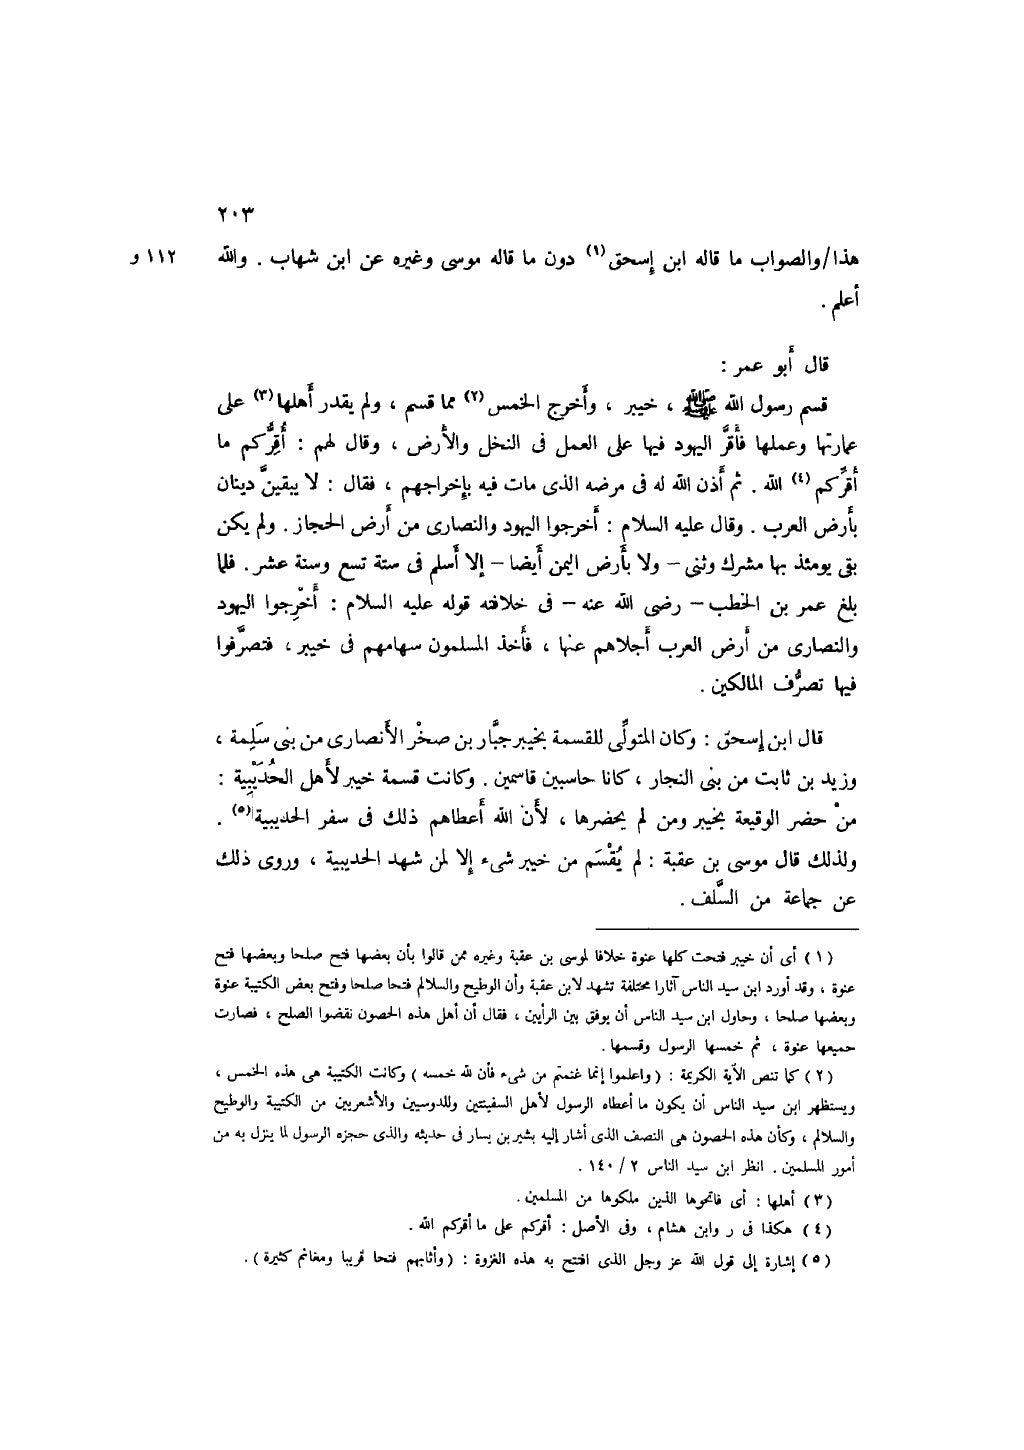 ٢٠٣
هذا/والصواب ما قاله ابن إسحق(١) دون ما قاله موسى وغيره عن ابن شهاب . والله ١١٢ و
أعلم .
قال أَبو عمر :
قسم رسول الله ﷺ ، خيبر ، وأَخرج الخمس(٢) مما قسم ، ولم يقدر أَهلها(٣) على
عمارتها وعملها فأَقرَّ اليهود فيها على العمل فى النخل والأَرض ، وقال لهم : أُقِرُّكم ما
أقرَّكم(٤) الله . ثم أَذن الله له فى مرضه الذى مات فيه بإخراجهم ، فقال : لا يبقينَّ دينان
بأَرض العرب . وقال عليه السلام : أَخرجوا اليهود والنصارى من أَرض الحجاز . ولم يكن
بقى يومئذ بها مشرك وثنى – ولا بأَرض اليمن أَيضا – إلا أَسلم فى ستة تسع وسنة عشر . فلما
بلغ عمر بن الخطب – رضى الله عنه – فى خلافته قوله عليه السلام : أَخْرِجوا اليهود
والنصارى من أَرض العرب أَجلاهم عنها ، فأَخذ المسلمون سهامهم فى خيبر ، فتصرَّفوا
فيها تصرُّف المالكين .
قال ابن إسحق : وكان المتولِّى للقسمة بخيبر جبَّار بن صخْر الأَنصارى من بنى سَلِمة ،
وزيد بن ثابت من بنى النجار ، كانا حاسبين قاسمين . وكانت قسمة خيبر لأَهل الحُدَيْبِية :
منْ حضر الوقيعة بخيبر ومن لم يحضرها ، لأَن الله أَعطاهم ذلك فى سفر الحديبية(٥) .
ولذلك قال موسى بن عقبة : لم يُقْسَم من خيبر شىء إلا لمن شهد الحديبية ، وروى ذلك
عن جماعة من السَّلف .
(١) أى أن خيبر فتحت كلها عنوة خلافا لموسى بن عقبة وغيره ممن قالوا بأن بعضها فتح صلحا وبعضها فتح
عنوة ، وقد أورد ابن سيد الناس آثارا مختلفة تشهد لابن عقبة وأن الوطيح والسلالم فتحا صلحا وفتح بعض الكتيبة عنوة
وبعضها صلحا ، وحاول ابن سيد الناس أن يوفق بين الرأيين ، فقال أن أهل هذه الحصون نقضوا الصلح ، فصارت
حميعها عنوة ، ثم خمسها الرسول وقسمها .
(٢) كما تنص الآية الكريمة : ( واعلموا إنما غنمتم من شىء فأن لله خمسه ) وكانت الكتيبة هى هذه الخمس ،
ويستظهر ابن سيد الناس أن يكون ما أعطاه الرسول لأهل السفينتين وللدوسيين والأشعريين من الكتيبة والوطيح
والسلالم ، وكأن هذه الحصون هى النصف الذى أشار إليه بشير بن يسار فى حديثه والذى حجزه الرسول لما ينزل به من
أمور المسلمين . انظر ابن سيد الناس ٢ / ١٤٠ .
(٣) أهلها : أى فاتحوها الذين ملكوها من المسلمين .
(٤) هكذا فى ر وابن هشام ، وفى الأصل : أقركم على ما أقركم الله .
(٥) إشارة إلى قول الله عز وجل الذى افتتح به هذه الغزوة : ( وأثابهم فتحا قريبا ومغانم كثيرة ) .